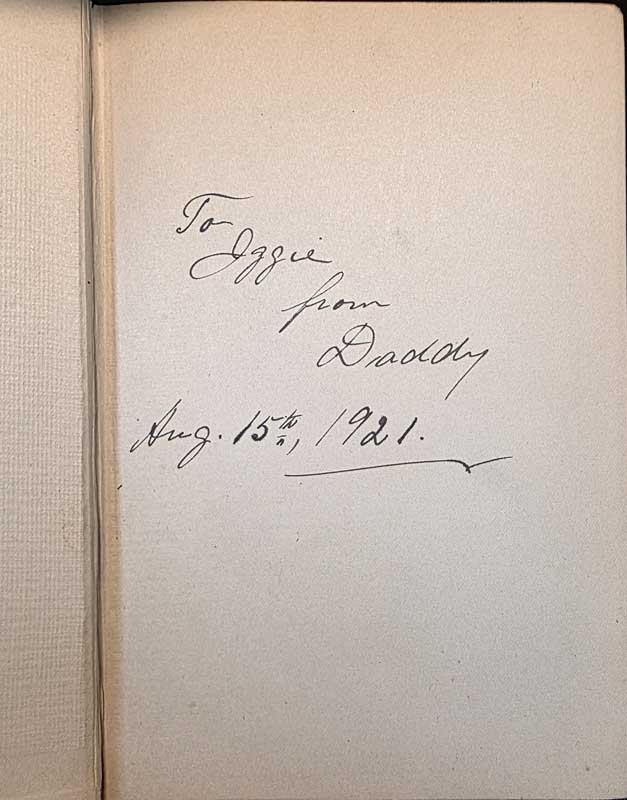 To
Iggie
from
Daddy
Aug. 15th, 1921.